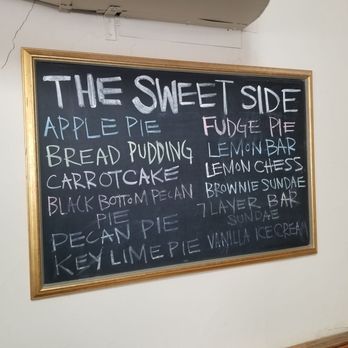 THE SWEET SIDE
APPLE PIE
BREAD PUDDING
CARROTCAKE
BLACK BOTTOM PECAN
PIE
PECAN PIE
KEY LIME PIE
FUDGE PIE
LEMON BAR
LEMON CHESS
BROWNIE SUNDAE
7 LAYER BAR
SUNDAE
VANILLA ICE CREAM